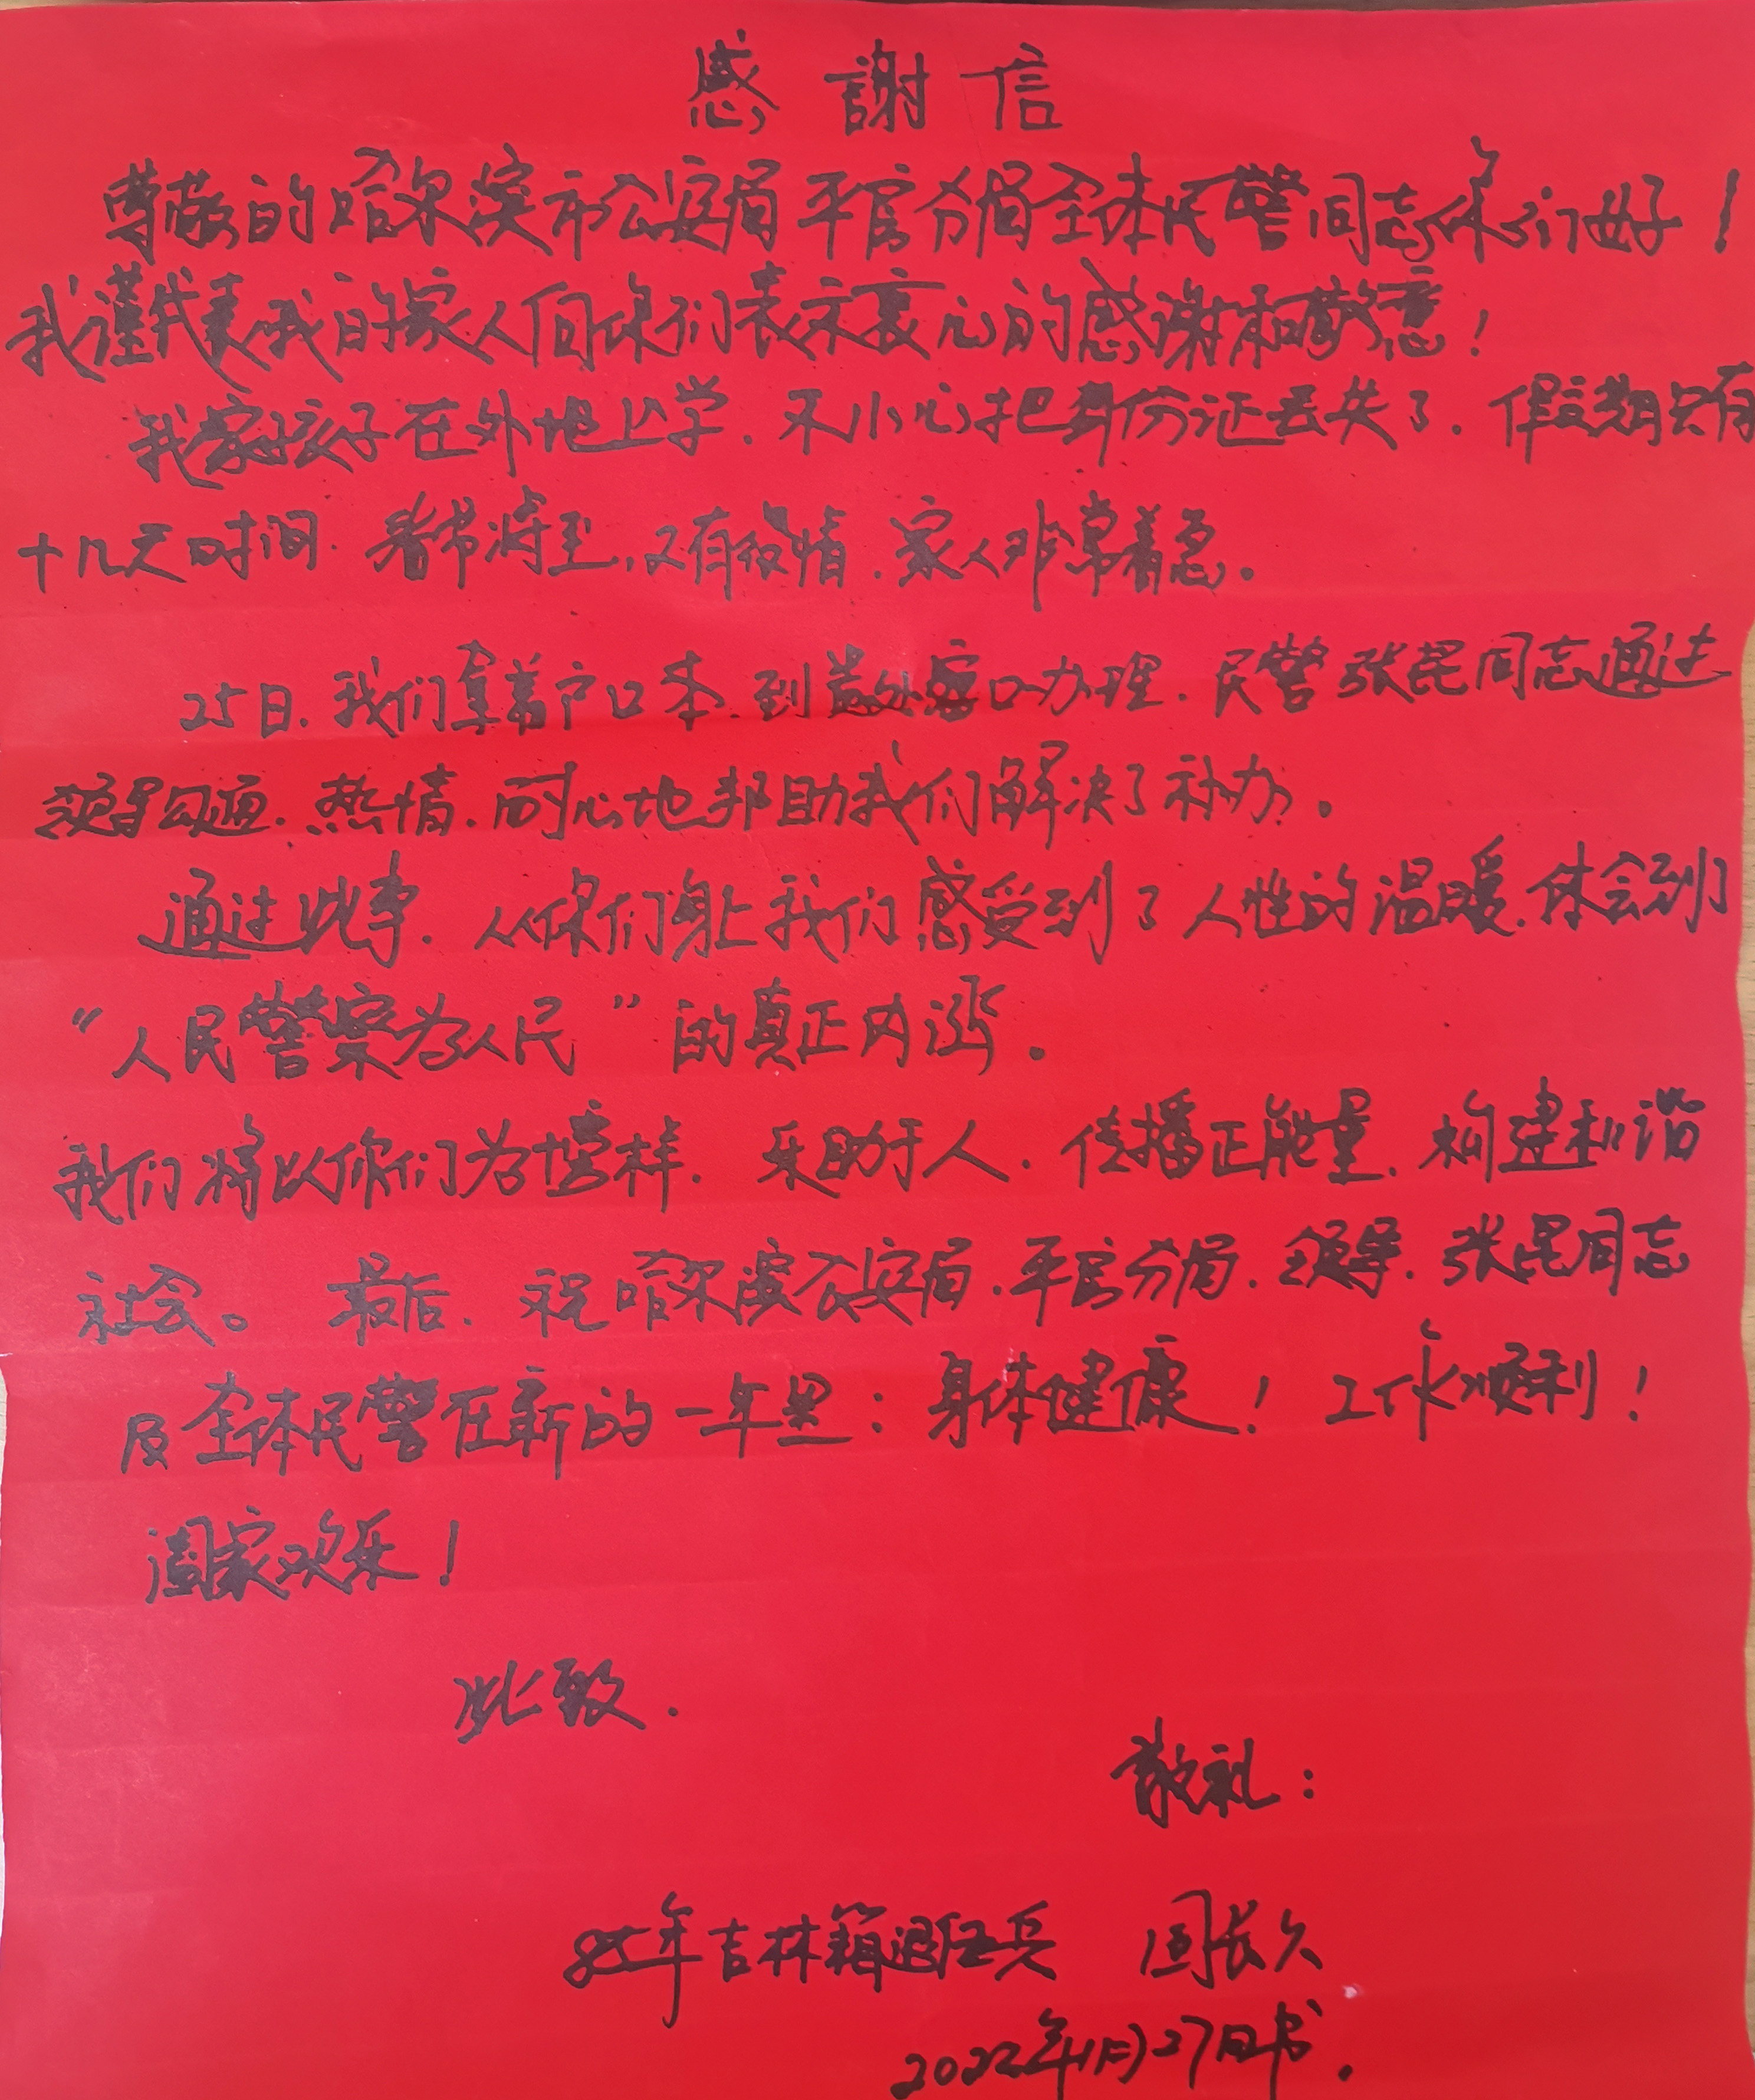 感謝信
尊敬的哈尔滨市公安局平房分局全体民警同志你们好！
我谨代表我的家人向你们表示衷心的感谢和敬意！
我家孩子在外地上学.不小心把身份证丢失了.假期只有
十几天时间.春节将至,又有疫情.家人非常着急。
25日.我们拿着户口本.到 窗口办理.民警张昆同志通过
领导勾通.热情.耐心地邦助我们解决了补办。
通过此事.从你们身上我们感受到了人性的温暖.体会到
“人民警察为人民”的真正内涵。
我们将以你们为榜样.乐助于人.传播正能量.构建和谐
社会。最后.祝哈尔滨公安局.平房分局.领导.张昆同志
及全体民警在新的一年里：身体健康！工作顺利！
阖家欢乐！
此致.
敬礼：
年吉林籍退伍兵 周长久
2022年1月27日书.